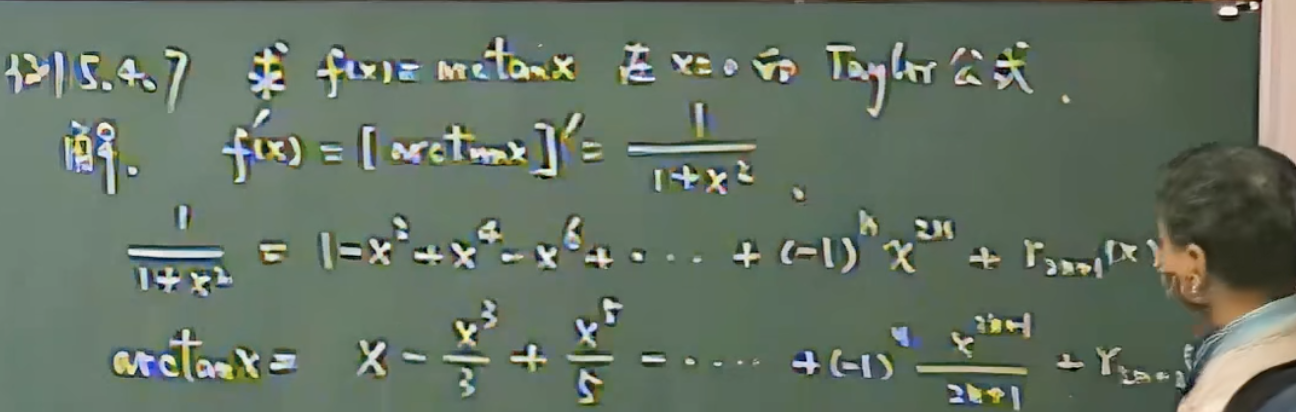 例5.4.7 求 f(x)= arctanx 在 x=0 的 Taylor 公式.
解. f'(x) = [arctanx]' = \frac{1}{1+x^2}.
\frac{1}{1+x^2} = 1-x^2+x^4-x^6+ ··· + (-1)^n x^{2n} + r_{2n+1}(x)
arctanx = x - \frac{x^3}{3} + \frac{x^5}{5} - ···· + (-1)^n \frac{x^{2n+1}}{2n+1} + r